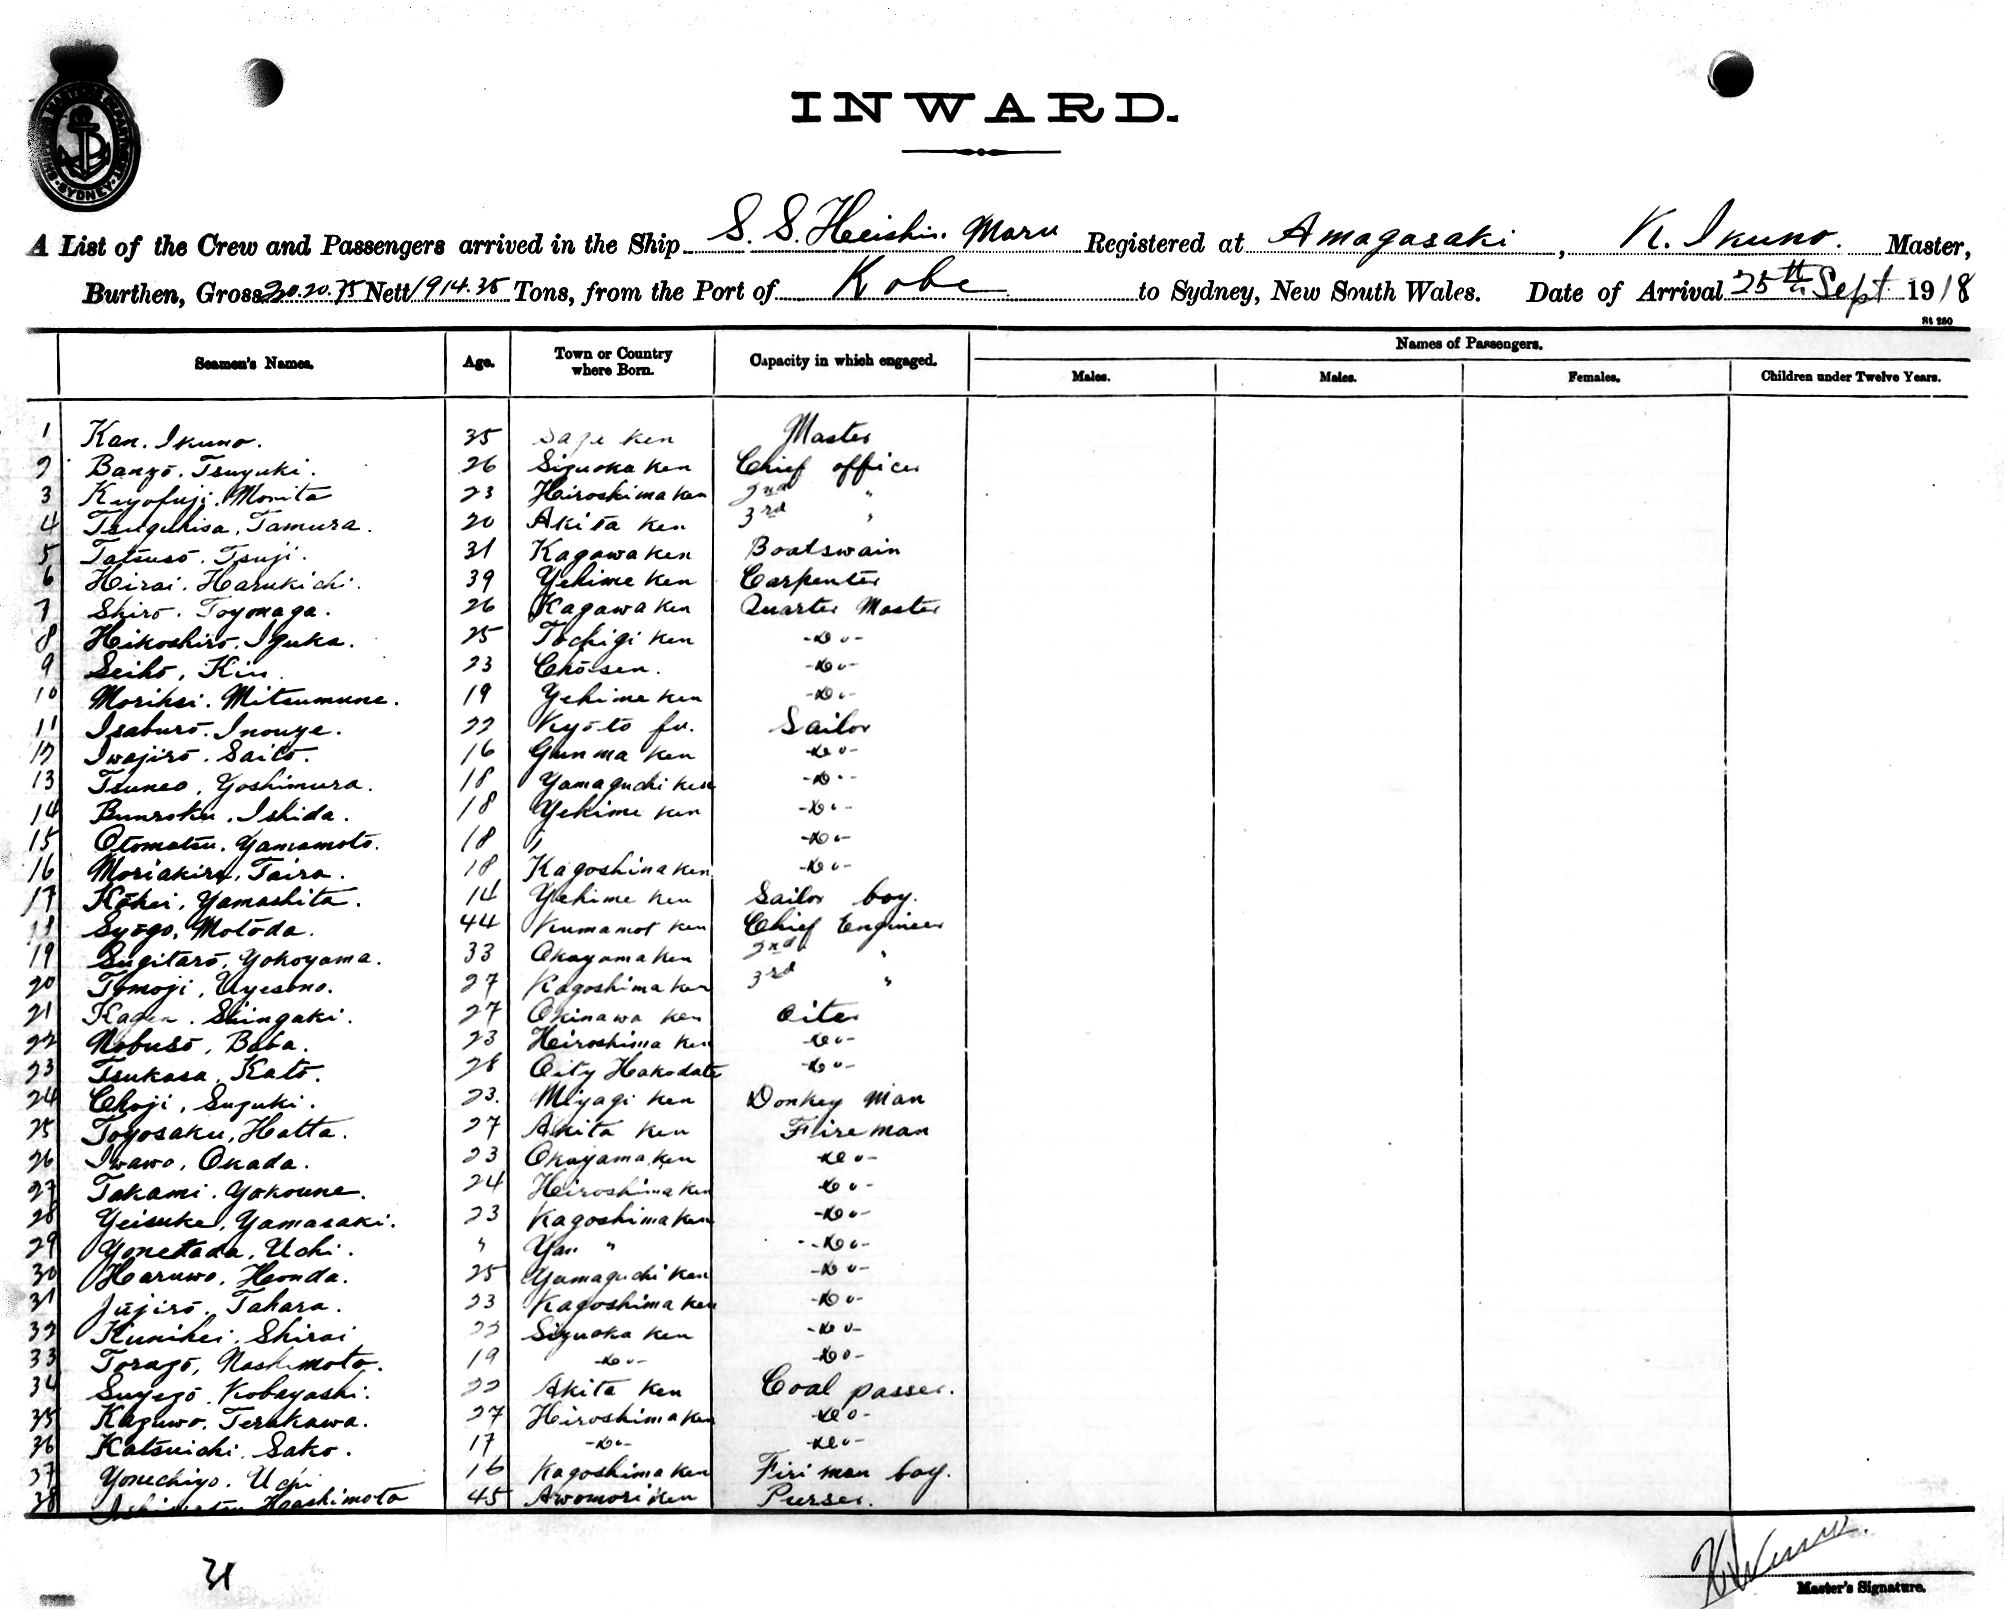 SHIPPING MASTER'S DEPARTMENT SYDNEY
INWARD.
A List of the Crew and Passengers arrived in the Ship S. S. Heishin Maru Registered at Amagasaki, K. Ikuno. Master,
Burthen, Gross Nett 1914.35 Tons, from the Port of Kobe to Sydney, New South Wales. Date of Arrival 25th Sept 1918
St 250
Seamen's Names. Age. Town or Country where Born. Capacity in which engaged. Names of Passengers.
Males. Males. Females. Children under Twelve Years.
1 Kan. Ikuno. 35 Saga ken Master
2 Banzō. Tsuyuki. 26 Sizuoka ken Chief officer
3 Kiyofuji. Morita 23 Heiroshima ken 2nd "
4 Tsuguhisa, Tamura. 20 Akita ken 3rd "
5 Tatsusō. Tsuji. 31 Kagawa ken Boatswain
6 Hirai. Harukichi. 39 Yehime ken Carpenter
7 Shirō. Toyonaga. 26 Kagawa ken Quarter Master
8 Hikoshirō. Iguka. 25 Tochigi ken -do-
9 Seihō, Kin. 23 Chōsen. -do-
10 Morihei. Mitsumune. 19 Yehime ken -do-
11 Isaburō. Inouye. 22 Kyōto fu. Sailor
12 Iwajirō. Saitō. 16 Gunma ken -do-
13 Tsuneo, Yoshimura. 18 Yamaguchi ken -do-
14 Bunroku. Ishida. 18 Yehime ken -do-
15 Otomatsu. Yamamoto. 18 " -do-
16 Moriakira, Taira. 18 Kagoshima ken -do-
17 Kōhei, Yamashita. 14 Yehime ken Sailor boy.
18 Syōgo, Motōda. 44 Kumamot ken Chief Engineer
19 Sugitarō, Yokoyama. 33 Okayama ken 2nd "
20 Tomoji, Uyesono. 27 Kagoshima ken 3rd "
21 Kagen. Shingaki. 27 Okinawa ken Oiler
22 Nobusō, Baba. 23 Heiroshima ken -do-
23 Tsukasa, Katō. 28 City Hakodate -do-
24 Choji, Suzuki. 23. Miyagi ken Donkey man
25 Toyosaku, Hatta. 27 Akita ken Fireman
26 Iwawo, Okada. 23 Okayama ken -do-
27 Takami. Yokoune. 24 Heiroshima ken -do-
28 Yeisuke, Yamasaki. 23 Kagoshima ken -do-
29 Yonetada, Uchi. " " -do-
30 Haruwo, Honda. 25 Yamaguchi ken -do-
31 Jūjirō. Tahara. 23 Kagoshima ken -do-
32 Kunihei, Shirai 22 Sizuoka ken -do-
33 Toragō, Nashimoto. 19 -do- -do-
34 Suyezō. Kobayashi. 22 Akita ken Coal passer.
35 Kazuwo. Terakawa. 27 Hiroshima ken -do-
36 Katsuichi. Sako. 17 -do- -do-
37 Yonechiyo. Uchi 16 Kagoshima ken Fireman boy.
38 Hashimoto 45 Awomori ken Purser.
K Ikuno.
Master's Signature.